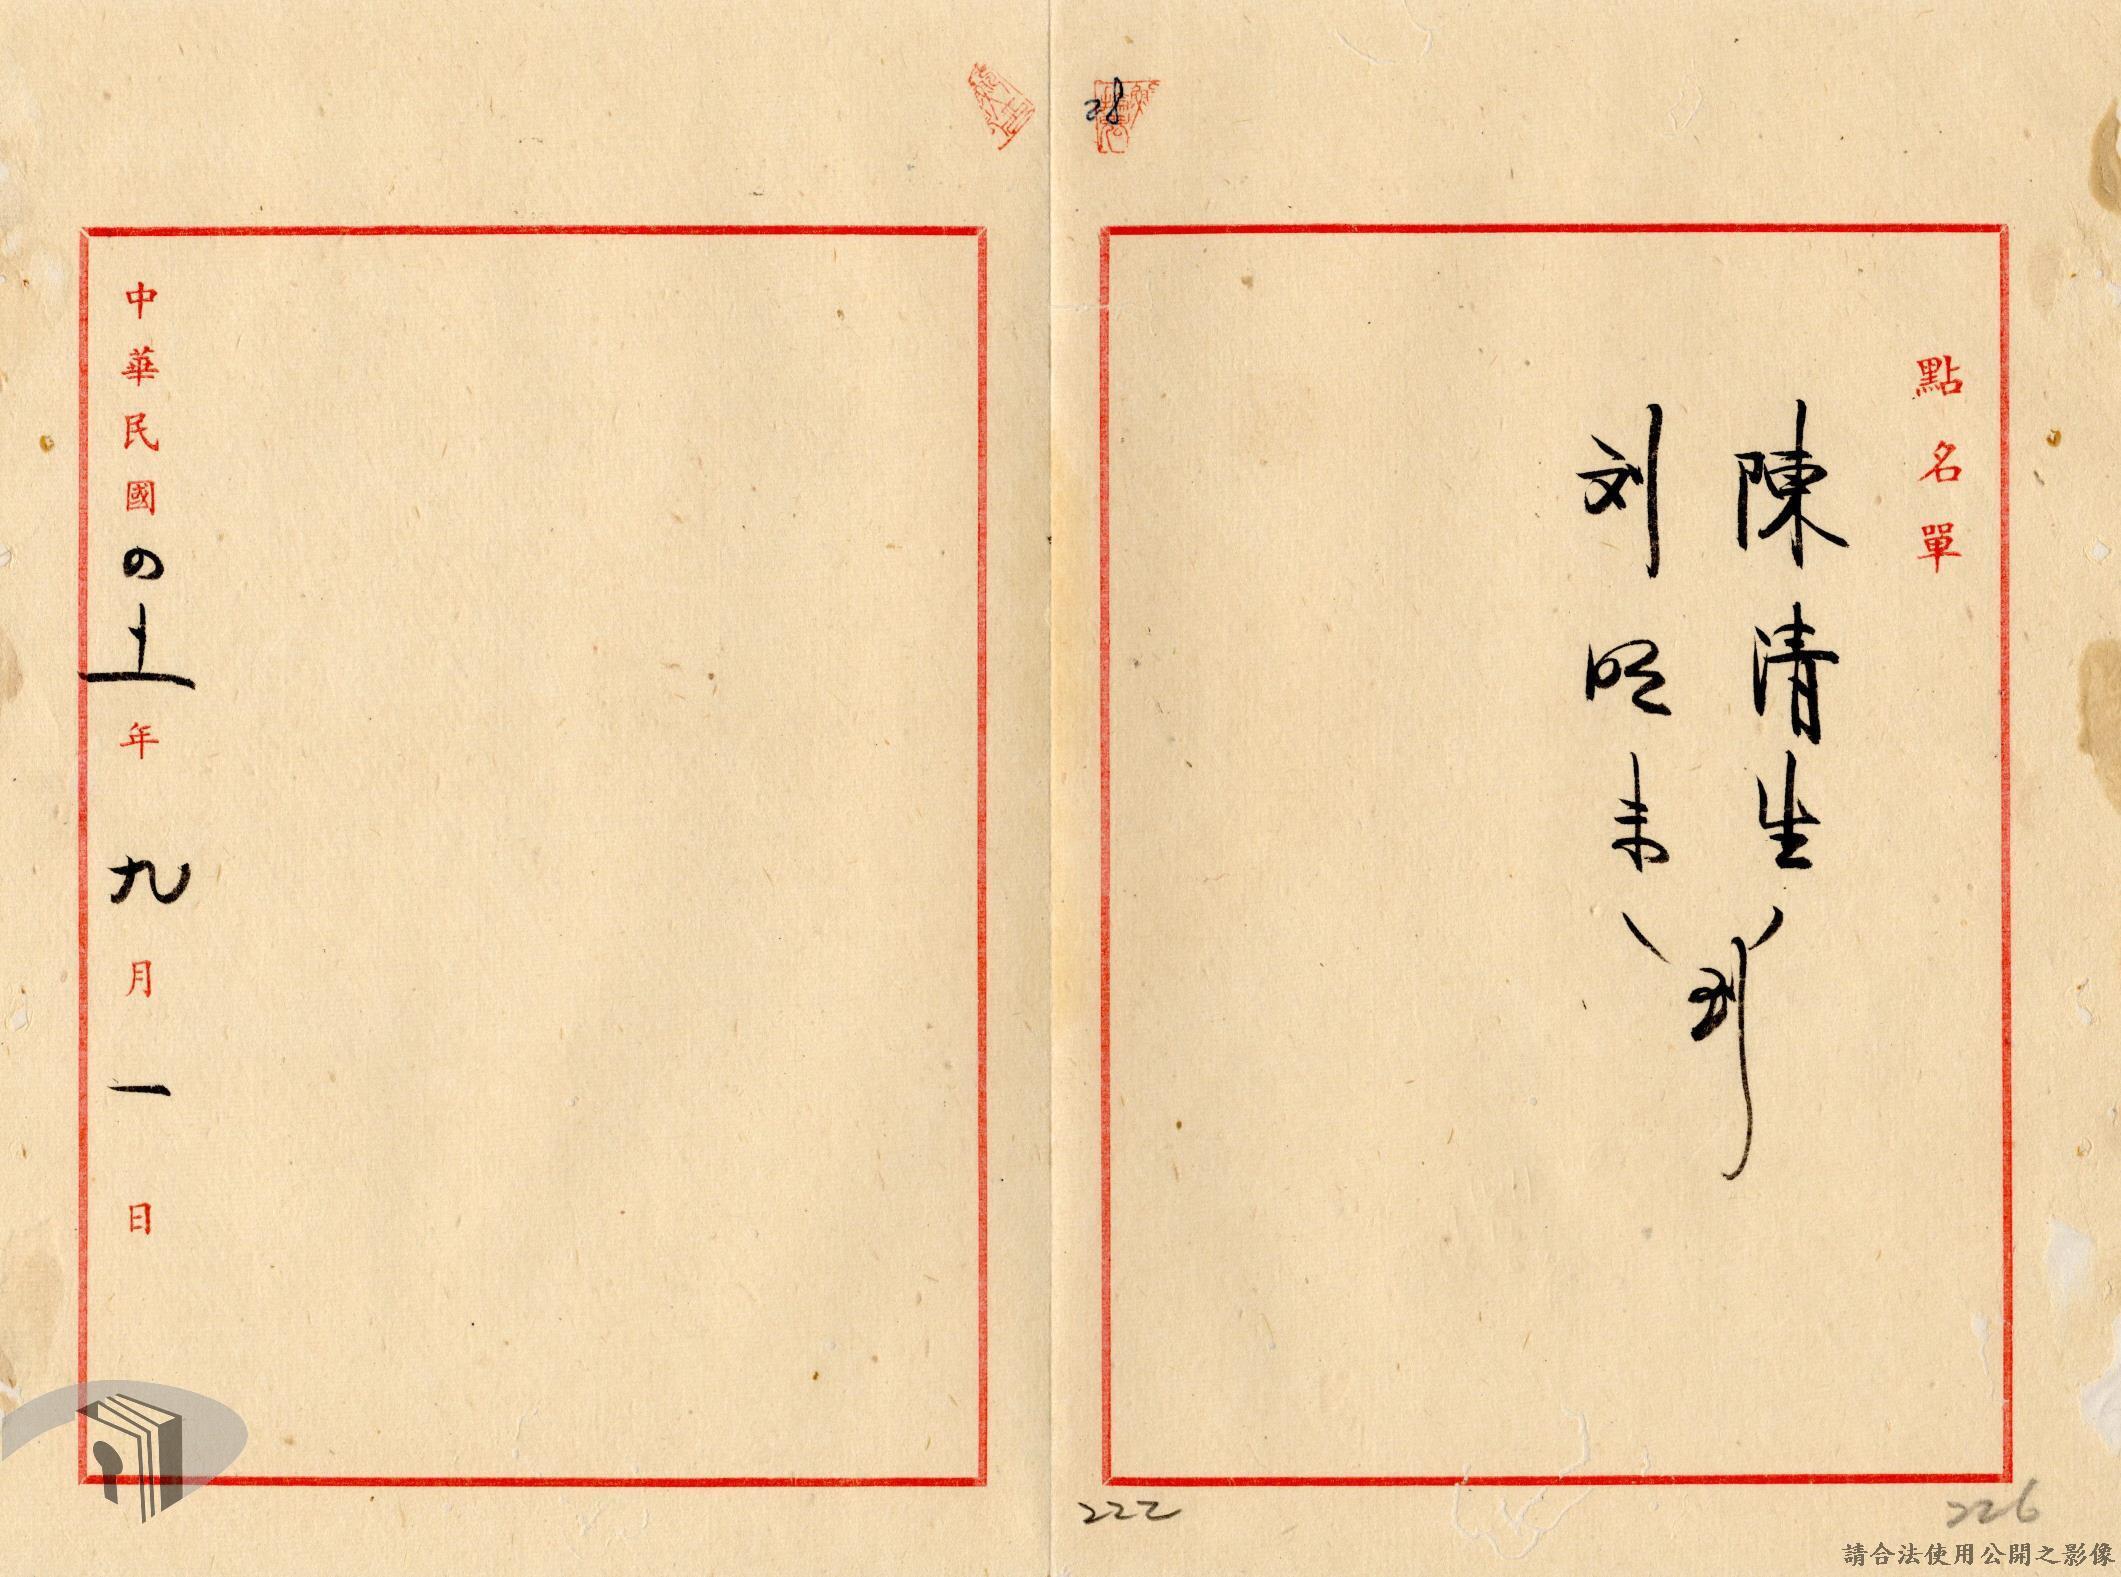 點名單
陳清生
刘明来
到
中華民國四十年九月一日
222
226
請合法使用公開之影像